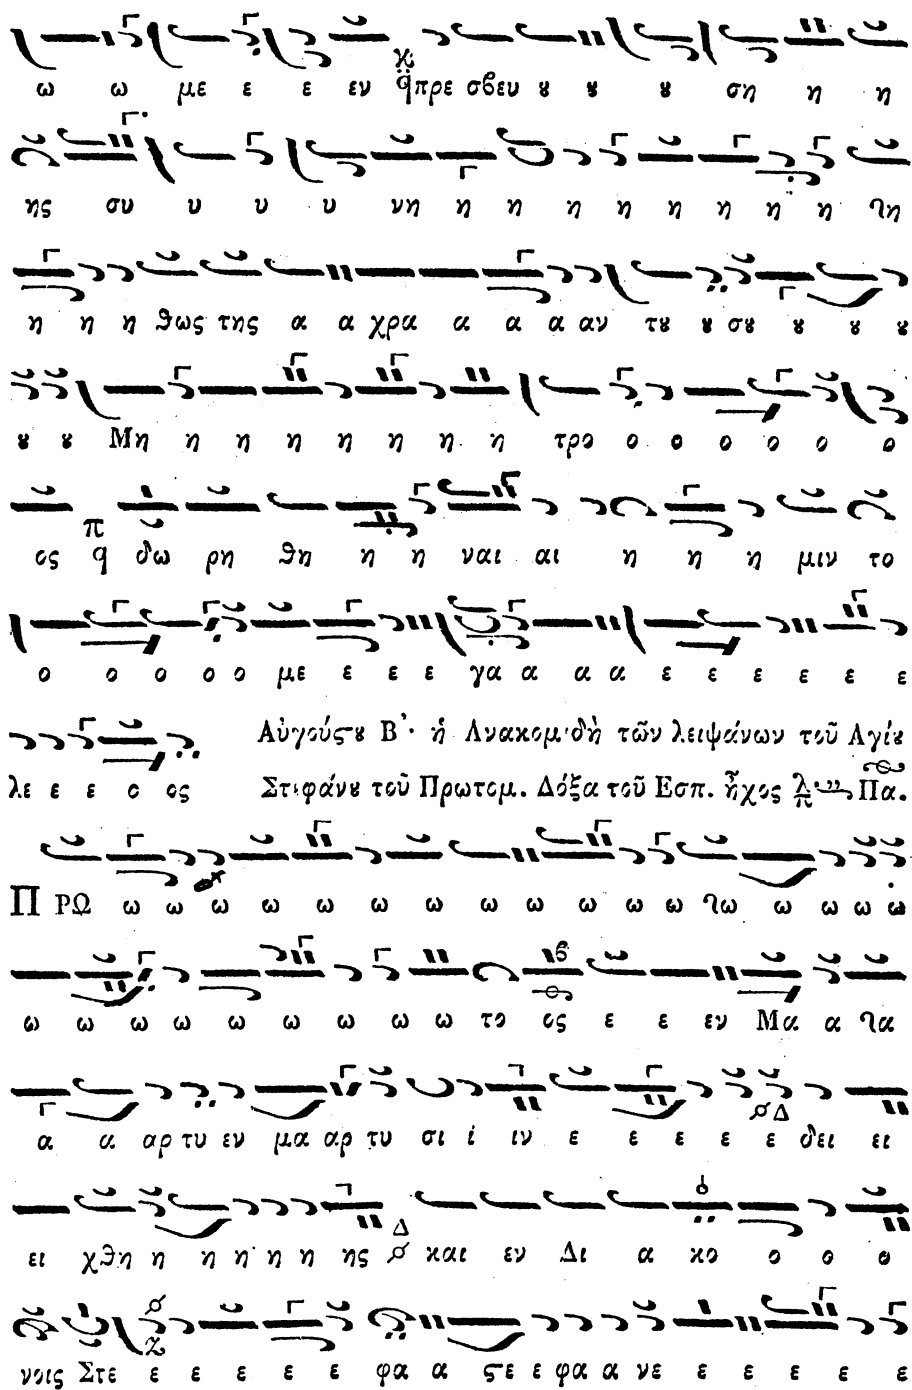 ω ω με ε ε εν πρε σβευ ȣ ȣ ȣ ση η η
ης συ υ υ υ νη η η η η η η η η τη
η η η θως της α α χρα α α α αν τȣ ȣ σȣ ȣ ȣ ȣ
ȣ ȣ Μη η η η η η η η τρο ο ο ο ο ο ο
ος δω ρη θη η η ναι αι η η η μιν το
ο ο ο ο ο με ε ε ε γα α α α ε ε ε ε ε ε
λε ε ε ο ος
Αὐγούϛȣ Β'· ἡ Ανακομιδὴ τῶν λειψάνων τοῦ Αγίȣ
Στεφάνȣ τοῦ Πρωτομ. Δόξα τοῦ Εσπ. ἦχος Πα.
Π ΡΩ ω ω ω ω ω ω ω ω ω ω ω τω ω ω ω ω
ω ω ω ω ω ω ω ω ω το ος ε ε εν Μα α τα
α α αρ τυ εν μα αρ τυ σι ί ιν ε ε ε ε ε δει ει
ει χθη η η η η η ης Δ και εν Δι α κο ο ο ο
νοις Στε ε ε ε ε ε φα α ϛε ε φα α νε ε ε ε ε